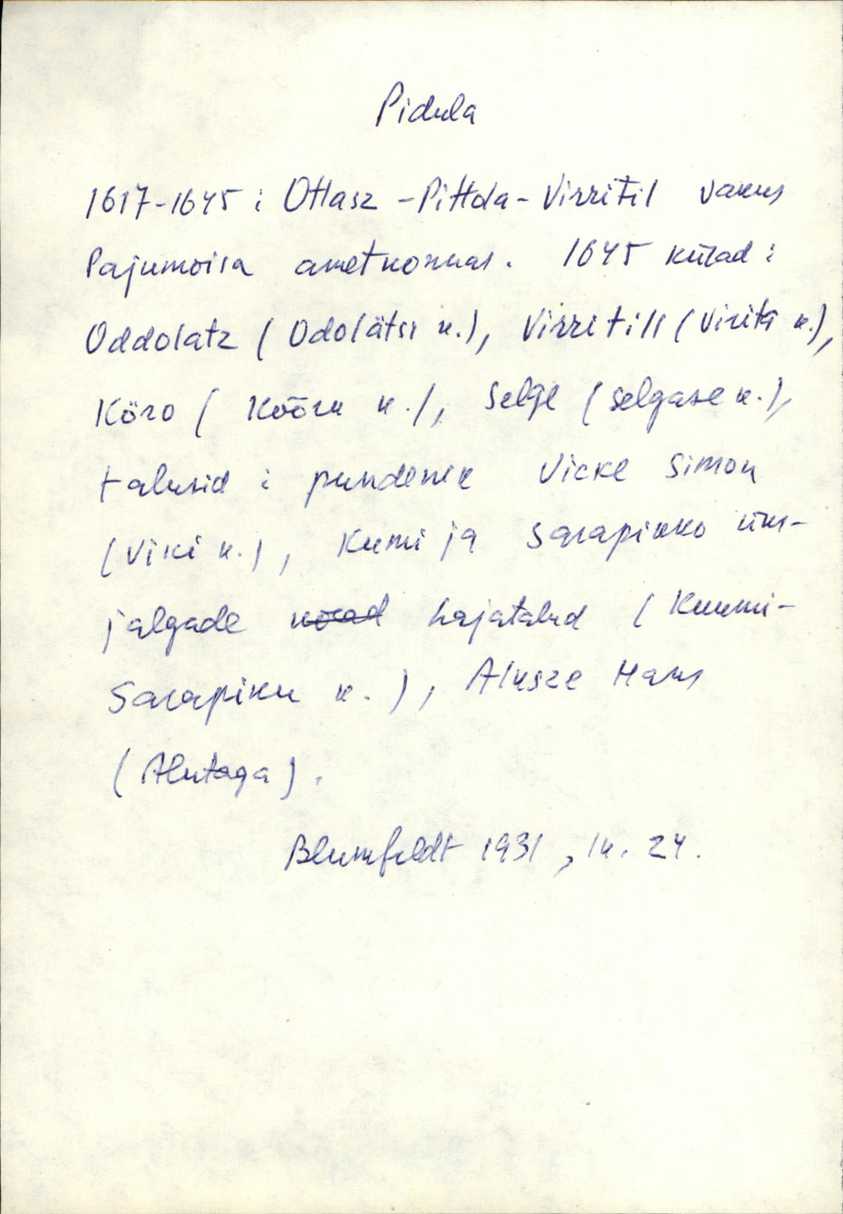 Pidula
1617-1645 : Ottasz - Pittola - Virritil vakus
Pajumoisa ametkonnas. 1645 külad :
Oddolatz ( Odolätsi k.), Virritill (Virita k.),
Köro ( Kõõru k.), Selge (Selgase k.),
talusid : pundenik Vicke Simon
(Viki k.), Kumi ja Sarapikko üks-
jalgade hajatalud ( Kuumi-
Sarapiku k. ), Alusze Hans
(Alutaga).
Blumfeldt 1931, lk. 24.